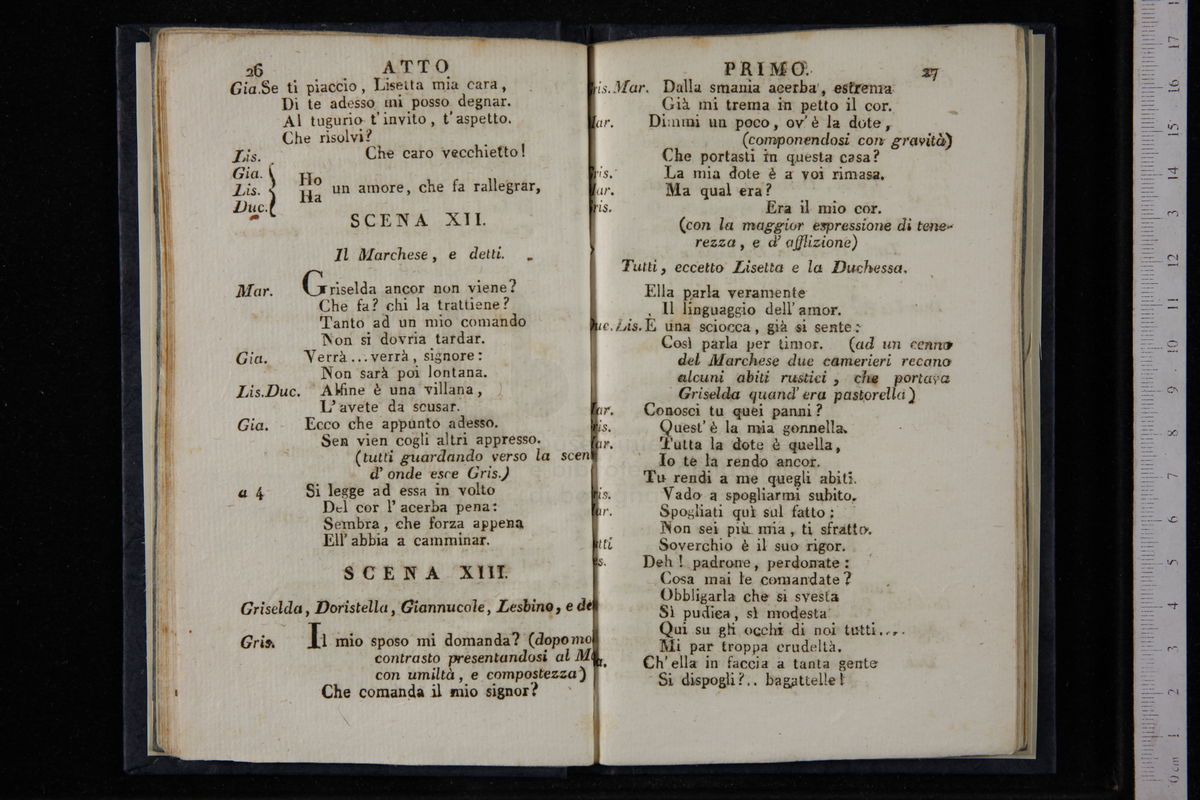 26 ATTO
Gia. Se ti piaccio, Lisetta mia cara,
Di te adesso mi posso degnar.
Al tugurio t'invito, t'aspetto.
Che risolvi?
Lis. Che caro vecchietto!
Gia.
Lis.
Duc.
Ho
Ha
un amore, che fa rallegrar,
SCENA XII.
Il Marchese, e detti.
Mar. Griselda ancor non viene?
Che fa? chi la trattiene?
Tanto ad un mio comando
Non si dovria tardar.
Gia. Verrà...verrà, signore:
Non sarà poi lontana.
Lis.Duc. Alfine è una villana,
L'avete da scusar.
Gia. Ecco che appunto adesso.
Sen vien cogli altri appresso.
(tutti guardando verso la scen
d'onde esce Gris.)
a 4 Si legge ad essa in volto
Del cor l'acerba pena:
Sembra, che forza appena
Ell'abbia a camminar.
SCENA XIII.
Griselda, Doristella, Giannucole, Lesbino, e de
Gris. Il mio sposo mi domanda? (dopo mo
contrasto presentandosi al Ma
con umiltà, e compostezza)
Che comanda il mio signor?
PRIMO. 27
ris. Mar. Dalla smania acerba, estrema
Già mi trema in petto il cor.
Mar. Dimmi un poco, ov'è la dote,
(componendosi con gravità)
Che portasti in questa casa?
Gris. La mia dote è a voi rimasa.
Mar. Ma qual era?
Gris. Era il mio cor.
(con la maggior espressione di tene-
rezza, e d'afflizione)
Tutti, eccetto Lisetta e la Duchessa.
Ella parla veramente
Il linguaggio dell'amor.
Duc. Lis. È una sciocca, già si sente:
Così parla per timor. (ad un cenno
del Marchese due camerieri recano
alcuni abiti rustici, che portava
Griselda quand'era pastorella)
ar. Conosci tu quei panni?
ris. Quest'è la mia gonnella.
ar. Tutta la dote è quella,
Io te la rendo ancor.
Tu rendi a me quegli abiti.
ris. Vado a spogliarmi subito.
ar. Spogliati quì sul fatto:
Non sei più mia, ti sfratto.
utti Soverchio è il suo rigor.
es. Deh! padrone, perdonate:
Cosa mai le comandate?
Obbligarla che si svesta
Sì pudica, sì modesta
Qui su gli occhi di noi tutti....
Mi par troppa crudeltà.
a. Ch'ella in faccia a tanta gente
Si dispogli?.. bagattelle!
0 cm 1 2 3 4 5 6 7 8 9 10 11 12 13 14 15 16 17